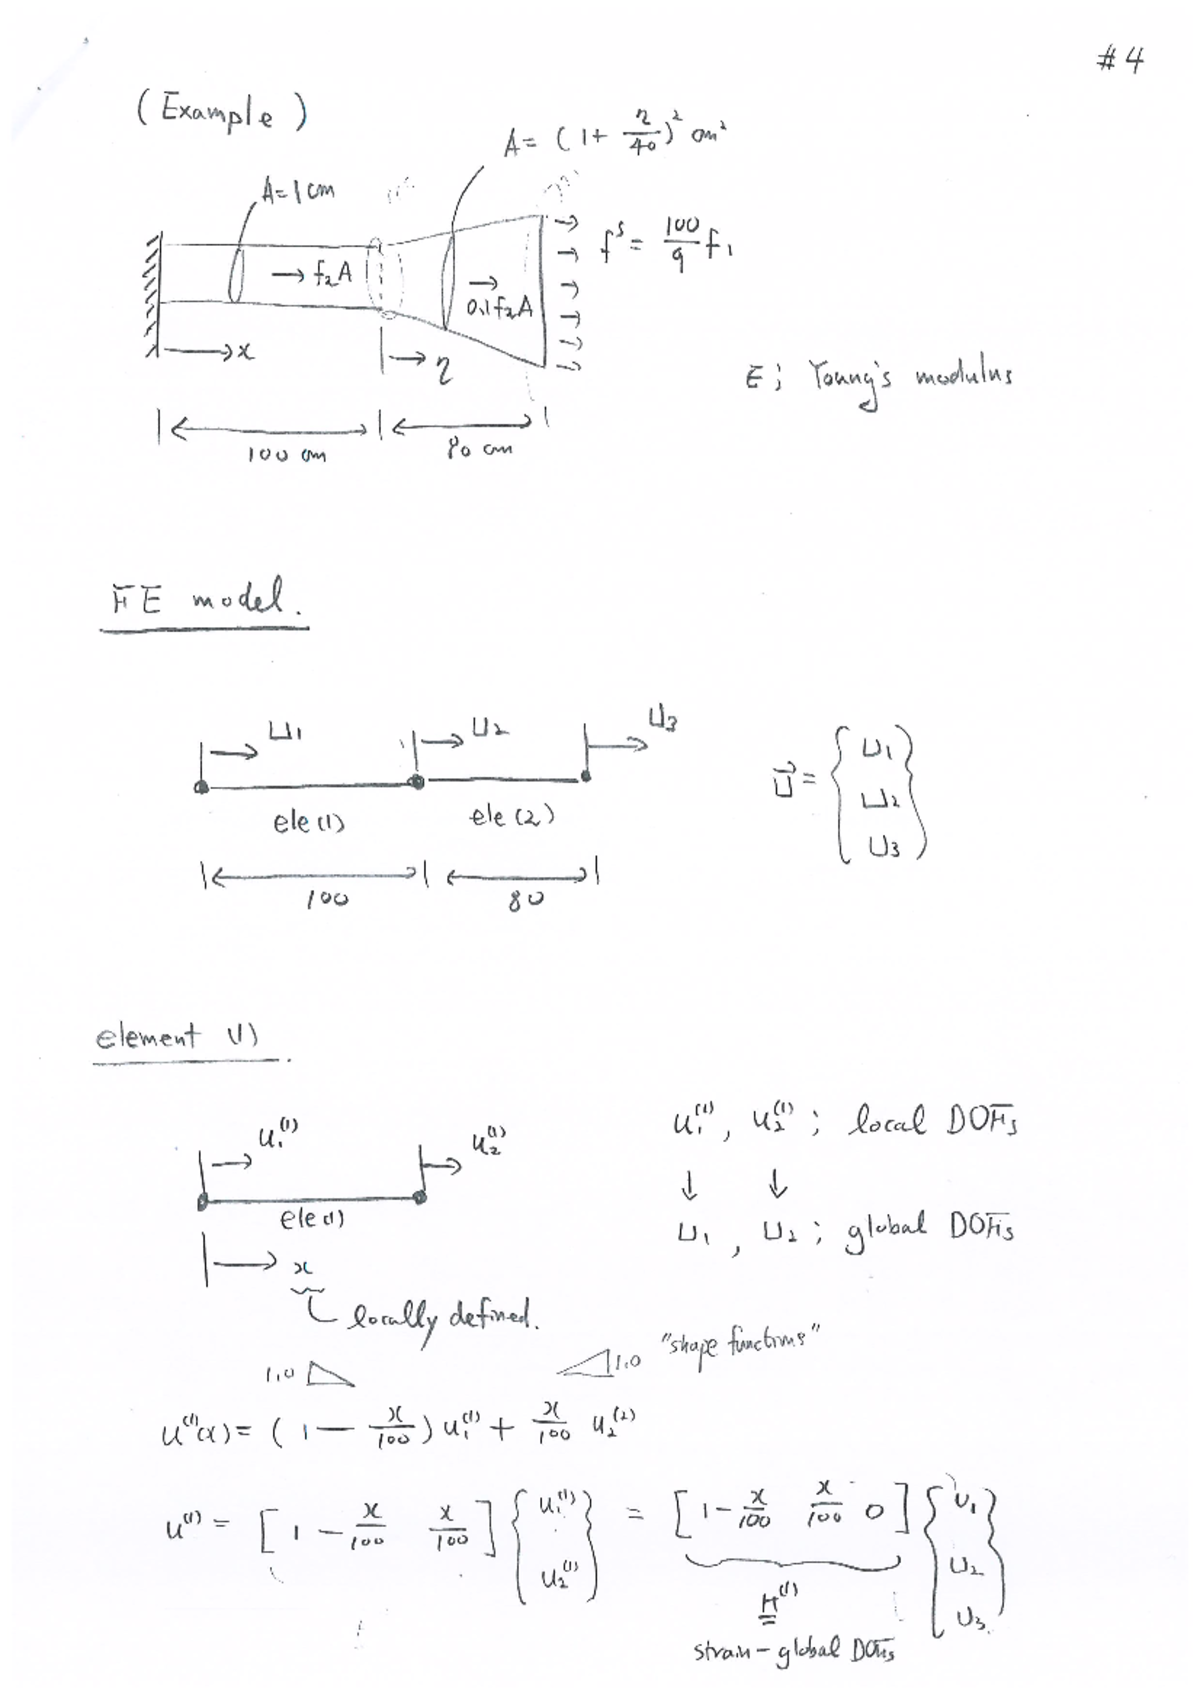 #4
(Example)
A= (1+ η/40)² cm²
A=1cm
→ f₂A
→ 0.1f₂A
fˢ = 100/9 f₁
→ x
→ η
E; Young's modulus
100 cm
80 cm
FE model.
U₁
U₂
U₃
ele(1)
ele(2)
100
80
U⃗ = { U₁ U₂ U₃ }
element (1)
u₁⁽¹⁾
u₂⁽¹⁾
ele(1)
→ x
locally defined.
u₁⁽¹⁾, u₂⁽¹⁾ ; local DOFs
↓ ↓
U₁, U₂ ; global DOFs
1.0
1.0
"shape functions"
u⁽¹⁾(x) = (1 − x/100) u₁⁽¹⁾ + x/100 u₂⁽²⁾
u⁽¹⁾ = [1 − x/100 x/100] { u₁⁽¹⁾ u₂⁽¹⁾ } = [1 − x/100 x/100 0] { U₁ U₂ U₃ }
H⁽¹⁾
strain - global DOFs